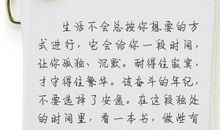 生活不会总按你想要的方
式进行，它会给你一段时间，
让你孤独、沉默。耐得住寂寞，
才守得住繁华。该奋斗的年纪，
不要选择了安逸。在这段独处
的时间里，看一本书，做些有